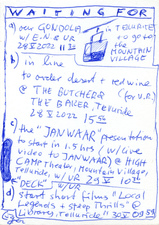 WAITING FOR
a) our GONDOLA in TELLURIDE
W/ E.N. & UR to go to
28 X 2022 11 the MOUNTAIN
VILLAGE
b) in line
to order desert + red wine
@ THE BUTCHER & (for U.R.)
THE BAKER, Telluride
28 X 2022 15 55
c) the "JANWAAR" presentation
to start in 1.5 hrs (w/ live
video to JANWAAR) @ HIGH
CAMP Theater, Mountain Village,
Telluride, w/ UR 29 X 10
DECK w/ UR
d) start short films "Local
Legends + Steep Thrills" @
Library, Telluride 30 X 09 59